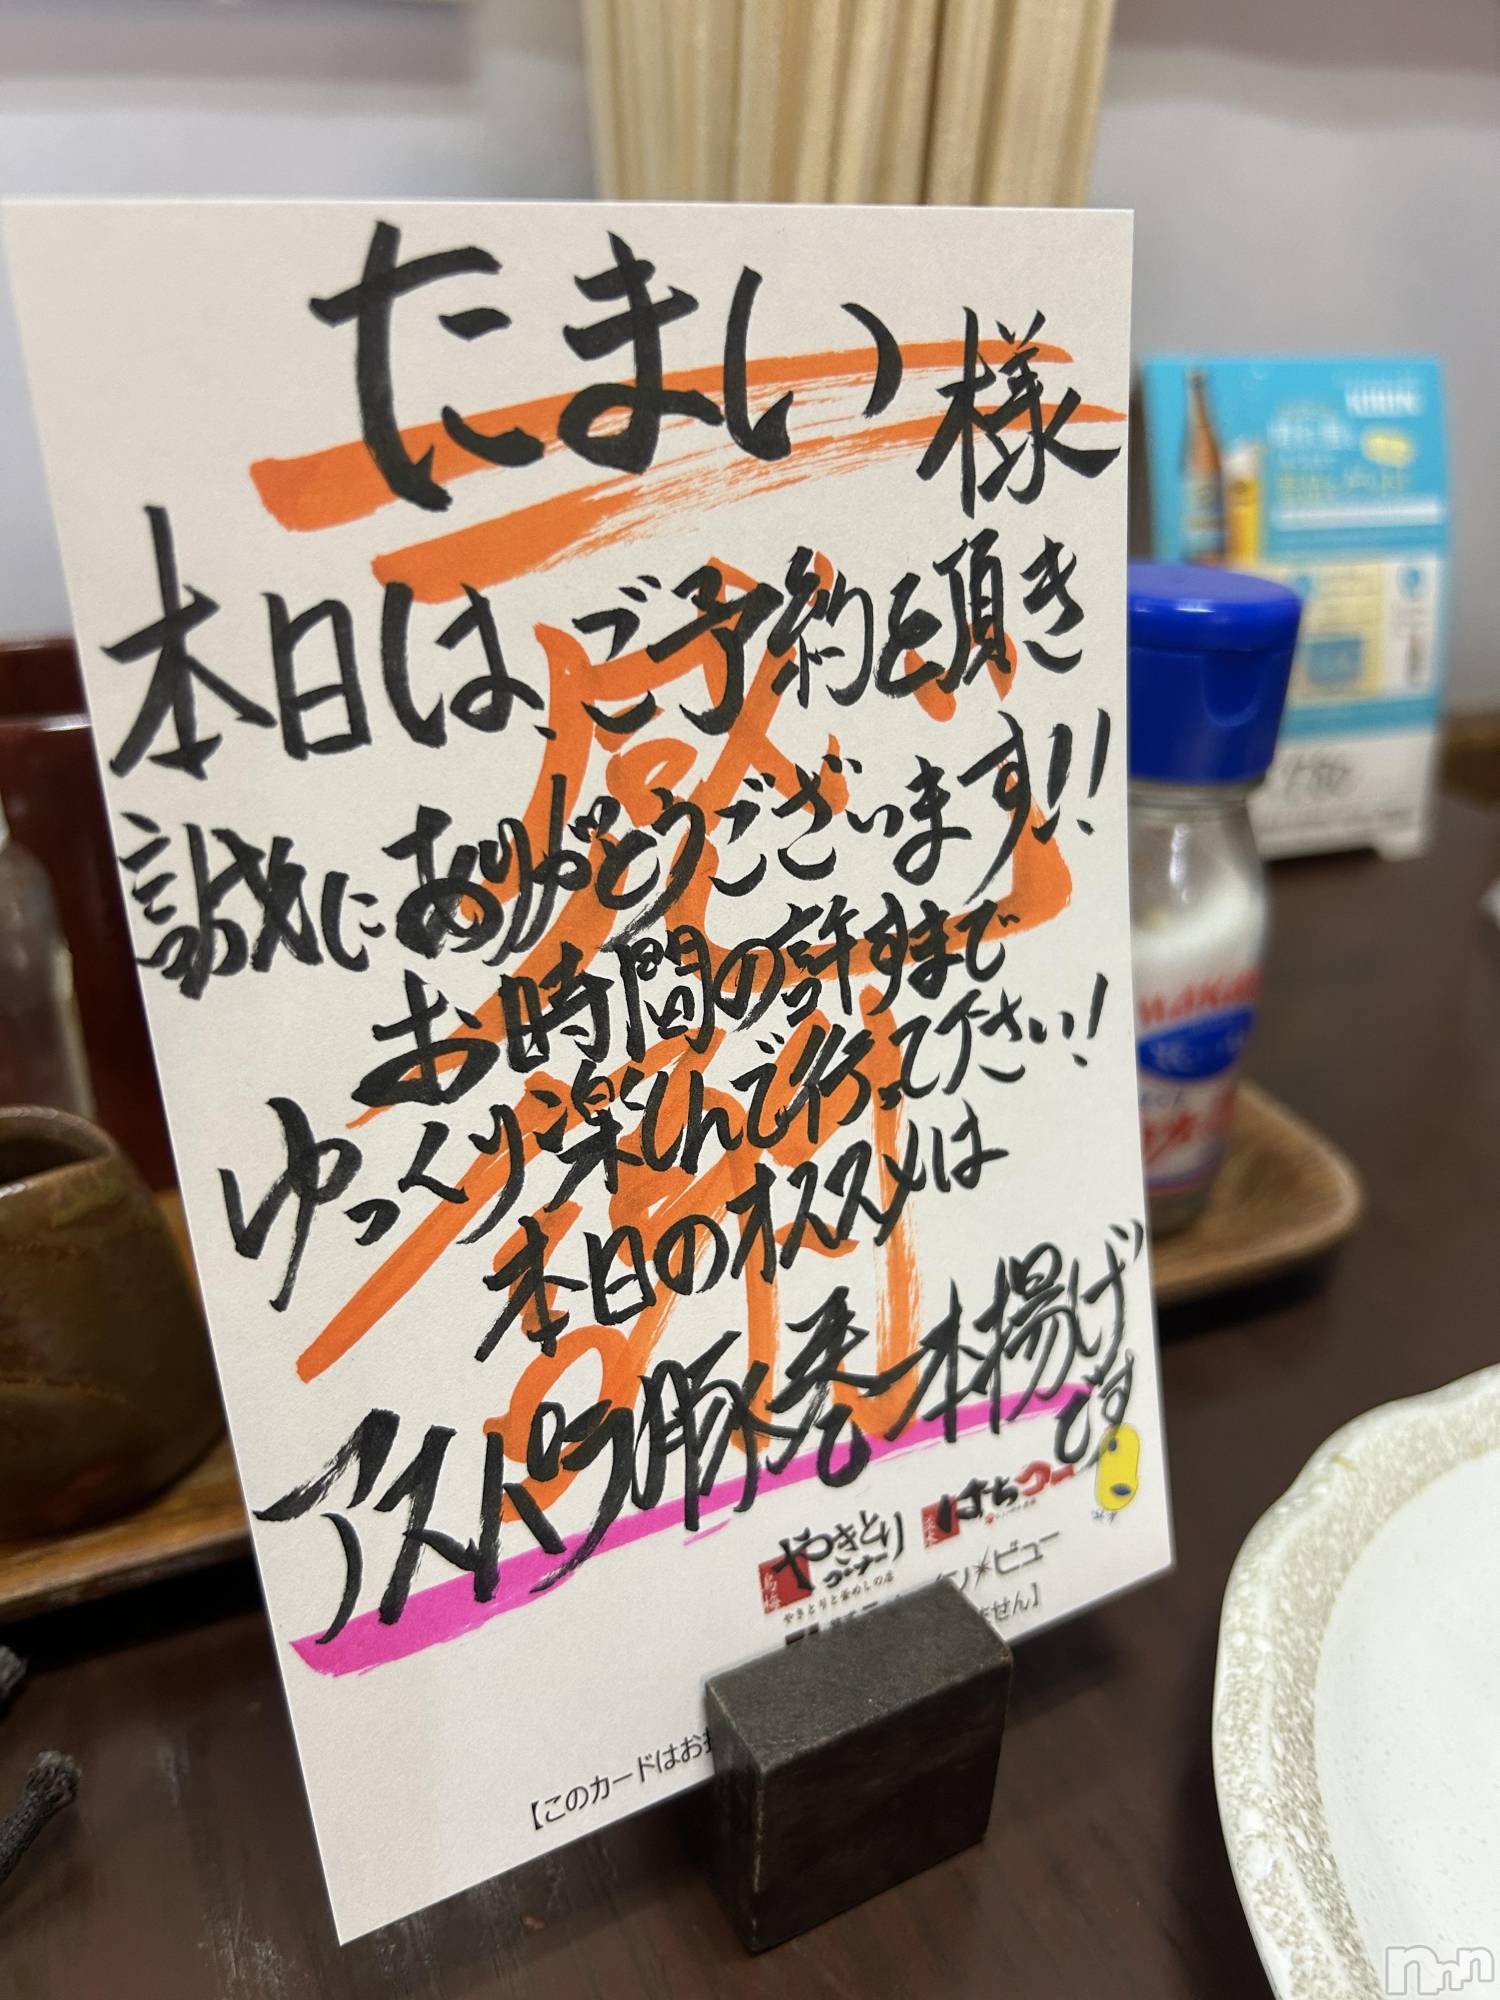 たまい様
本日は、ご予約を頂き
誠にありがとうございます!!
お時間の許すまで
ゆっくり楽しんで行って下さい!
本日のオススメは
アスパラ豚巻一本揚げです
感謝
やきとり
コーナー
やきとりと釜めしの店
はちコー
ビュー
ません】
【このカードはお
nnn